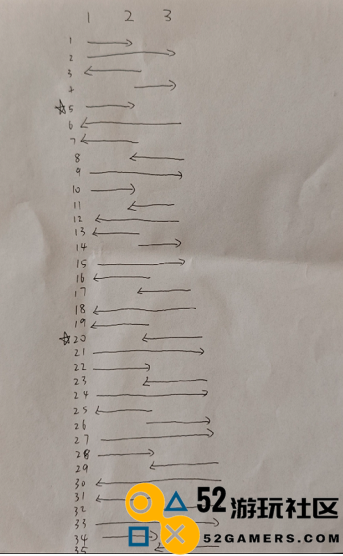 1 2 3
1
2
3
4
☆5
6
7
8
9
10
11
12
13
14
15
16
17
18
19
☆20
21
22
23
24
25
26
27
28
29
30
31
32
33
34
35
52游玩社区
52GAMERS.COM